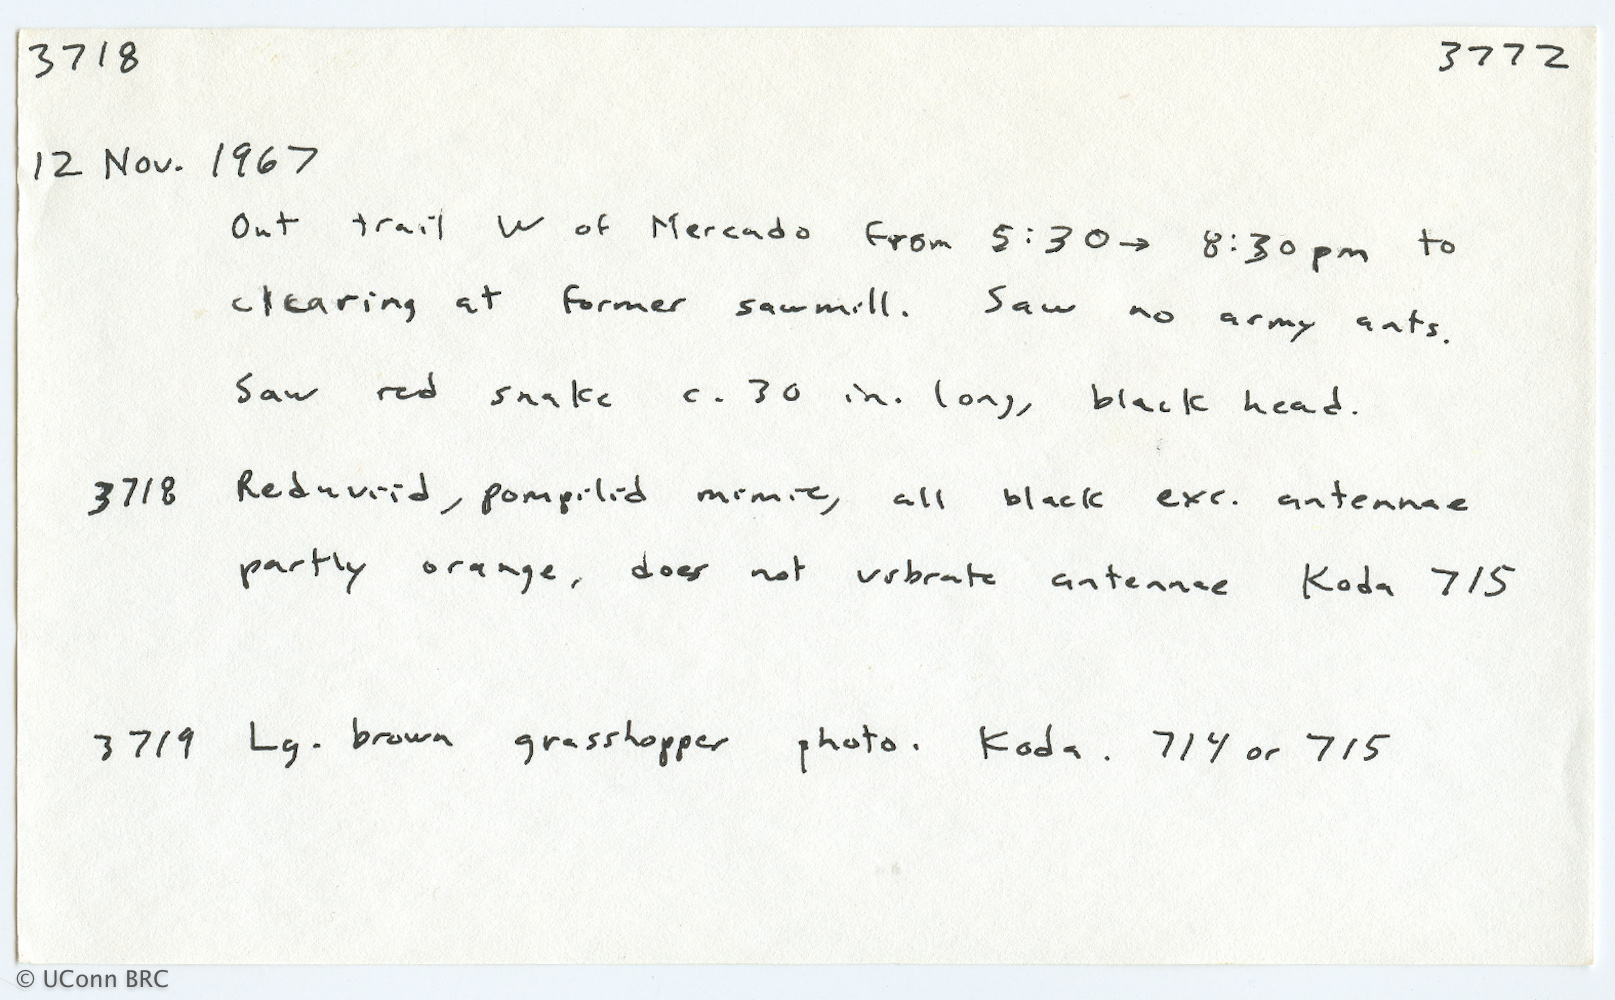 3718 3772
12 Nov. 1967
Out trail W of Mercado from 5:30→ 8:30pm to
clearing at former sawmill. Saw no army ants.
Saw red snake c. 30 in. long, black head.
3718 Reduviid, pompilid mimic, all black exc. antennae
partly orange, does not vibrate antennae Koda 715
3719 Lg. brown grasshopper photo. Koda. 714 or 715
© UConn BRC